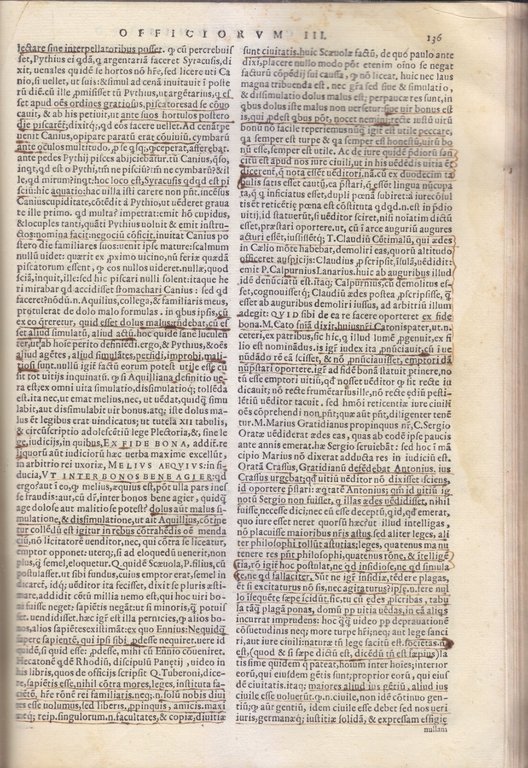 OFFICIORVM III. 136
lectare sine interpellatoribus posset. ꝙ cū percrebuis
set, Pythius ei qdā, q argentariā faceret Syracusis, di
xit, uenales quidē se hortos nō hře, sed licere uti Ca
nio, si uellet, ut suis: & simul ad cenā inuitauit
esset apud oēs ordines gratiosus, piscatores ad se cōuo
cauit, & ab his petiuit, ut ante suos hortulos postero
die piscarēt: dixitq; qd eos facere uellet. Ad cenā tpe
uenit Canius, opipare paratū erat cōuiuiū, cymbarū
ante oculos multitudo
ante pedes Pythij pisces abijciebātur. tū Canius, qso,
le, qd mirum? inqt: hoc loco est, Syracusis qdqd est pi
sciū: hic aquatio: hac uilla isti carere non pnt. incēsus
Canius cupiditate, cōtēdit a Pythio, ut uēderet graua
te ille primo. qd multa? impetrat: emit hō cupidus,
& locuples tanti, quāti Pythius uoluit: & emit instru
ctos: nomina facit: negociū cōficit. inuitat Canius po
stero die familiares suos: uenit ipse mature: scalmum
nullū uidet: quærit ex pximo uicino, nū feriæ quædā
piscatorum essent, ꝙ eos nullos uideret. nullæ, quod
sciā, inquit, ille: sed hic piscari nulli solent: itaque he
ri mirabar qd accidisset. stomachari Canius: sed qd
faceret? nōdū. n. Aquilius, collega, & familiaris meus,
protulerat de dolo malo formulas. in qbus ipsis, cū
ex eo qreretur, quid esset dolus malus, rndebat, cū eſ
set aliud simulatū, aliud actū. hoc quidē sane luculē
ter, ut ab hoīe perito definiēdi. ergo, & Pythius, & oēs
aliud agētes, aliud simulātes, perfidi, improbi, mali
tiosi sunt. nullū igit factū eorum potest utile esse, cū
sit tot uitijs inquinatū. ꝙ si Aquilliana definitio ue
ra est, ex omni uita simulatio, dissimulatioq; tollēda
est. ita nec, ut emat melius, nec, ut uēdat, quidq simu
labit, aut dissimulabit uir bonus. atq; iste dolus ma
lus ēt legibus erat uindicatus; ut tutela XII tabulis,
& circūscriptio adolescētiū lege Plectoria, & sine le
ge, iudicijs, in quibus, EX FIDE BONA, additur. re
liquorū aūt iudiciorū hæc uerba maxime excellūt;
in arbitrio rei uxoriæ, MELIVS AEQVIVS: in fi
ducia, VT INTER BONOS BENE AGIER. qd
ergo? aut in eo, ꝙ melius, æquius est, pōt ulla pars ines
se fraudis: aut, cū dř, inter bonos bene agier, quidq
age dolose aut malitiose potest? dolus aūt malus si
mulatione, & dissimulatione, ut ait Aquillius, cōtine
tur. tollēdū est igitur in rebus cōtrahēdis oē menda
ciū, nō licitatorē uenditor, nec, qui cōtra se liceatur,
emptor opponet: uterq;, si ad eloquēdū uenerit, non
plus, q semel, eloquetur. Q. quidē Scæuola, P. filius, cū
postulasset, ut sibi fundus, cuius emptor erat, semel in
dicaret, idq; uēditor ita fecisset, dixit se pluris æstima
mare, addidit cētū millia. nemo est, qui hoc uiri bo
ni fuisse neget: sapiētis negāt: ut si minoris, q potuis
set, uendidisset. hæc igit est illa pernicies, ꝙ alios bo
nos, alios sapiētes existimāt: ex quo Ennius: Nequidq
sapere sapientē, qui ipsi sibi pdesse nequiret. uere id
quidē, si quid esset pdesse, mihi cū Ennio cōueniret.
Hecatonē qdē Rhodiū, discipulū Panętij, uideo in
his libris, quos de officijs scripsit Q. Tuberoni, dice
re, sapiētis esse, nihil cōtra mores, leges, instituta fa
ciētē, hře rōnē rei familiaris. neq;. n. solū nobis diui
tes esse uolumus, sed liberis, ppinquis, amicis, maxi
meq; reip. singulorum. n. facultates, & copiæ, diuitiæ
sunt ciuitatis. huic Scæuolæ factū, de quo paulo ante
dixi, placere nullo modo pōt: etenim oīno se negat
facturū cōpēdij sui causa, ꝙ nō liceat. huic nec laus
magna tribuenda est. nec gřa. sed siue & simulatio,
& dissimulatio dolus malus est; perpaucæ res sunt, in
qbus dolus iste malus non uersetur: siue uir bonus est
is, qui pdest qbus pōt, nocet nemini; recte iustū uirū
bonū nō facile reperiemus. nūq igit est utile peccare,
qa semper est turpe: & qa semper est honestū, uirū bo
nū esse, semper est utile. Ac de iure quidē pdiorū san
citū est apud nos iure ciuili, ut in his uēdēdis uitia di
cerent, q nota esset uēditori. nā. cū ex duodecim ta
bulis satis esset cautū, ea pstari, q essēt lingua nūcupa
ta, q qui inficiatus esset, dupli pœnā subiret: a iurecōsul
tis ēt reticētię pœna est cōstituta. qdqd. n. est in pdio
uitij, id statuerūt, si uēditor sciret, nisi noīatim dictū
esset, præstari oportere. ut, cū ī arce auguriū augures
acturi essēt, iussissētq; T. Claudiū Cētimalū, qui ædes
in Cælio mōte habebat, demoliri eas, quorū altitudo
officeret auspicijs: Claudius pscripsit, īsulā, uēdidit:
emit P. Calpurnius Lanarius. huic ab auguribus illud
idē denūciatū est. itaq; Calpurnius, cū demolitus es
set, cognouissetq; Claudiū ædes postea pscripsisse, ꝙ
esset ab auguribus demoliri iussus, ad arbitrū illum
adegit: QVID sibi de ea re facere oporteret ex fide
bona. M. Cato sniā dixit, huius nři Catonis pater, ut. n.
ceteri, ex patribus, sic hic, q illud lumē pgenuit, ex fi
lio est nominādus. is igit iudex ita pnūciauit, cū ī ue
nūdādo rē eā scisset, & nō pnūciauisset, emptori dā
nū pstari oportere. igit ad fidē bonā statuit ptinere, no
tū esse emptori uitiū, qd nosset uēditor. ꝙ si recte iu
dicauit; nō recte frumētarius ille, nō recte ędiū pesti
lētiū uēditor tacuit. sed hmōi reticētiæ iure ciuili
oēs cōprehendi non pnt; quæ aūt pnt, diligenter tenē
tur. M. Marius Gratidianus propinquus nř, C. Sergio
Oratæ uēdiderat ædes eas, quas ab eodē ipse paucis
ante annis emerat. hæ Sergio seruiebāt: sed hoc ī mā
cipio Marius nō dixerat. adducta res in iudiciū est.
Oratā Crassus, Gratidianū defēdebat Antonius. ius
Crassus urgebat; qd uitij uēditor nō dixisset sciens,
id oportere pstari: æqtatē Antonius; qm id uitiū ig
notū Sergio non fuisset, q illas ædes uēdidisset, nihil
fuisse necesse dici; nec eū esse deceptū, qd, quod emerat,
quo iure esset neret. quorsū hæc? ut illud intelligas,
nō placuisse maioribus nřis astutos. sed aliter leges, ali
ter philosophi tollūt astutias: leges, quatenus manu
tenere res pnt: philosophi, quatenus rōne, & ītellige
tia. rō igit hoc postulat, ne qd insidiose, ne qd simula
te, ne qd fallaciter. Sūt ne igit insidiæ, tēdere plagas,
ēt si excitaturus nō sis, nec agitaturus? ipsæ. n. feræ nul
lo īsequēte sæpe īcidūt. sic, tu cū ædes pscribas, tabu
lā tāq plagā ponas, domū pp uitia uēdas, in eā aliqs
incurrat imprudens: hoc qq uideo pp deprauationē
cōsuetudinis neq; more turpe hři; neq; aut lege sanci
ri, aut iure ciuili: naturæ tn lege sācitū est. societas. n.
est, (quod & si sæpe dictū est, dicēdū tn est sæpius) la
tissime quidem q pateat, hoīum inter hoīes; interior
eorū, qui eiusdem gētis sunt; proprior eorū, qui eius
dē ciuitatis. itaq; maiores aliud ius gētiū, aliud ius
ciuile esse uoluerūt. ꝙ. n. ciuile, non idē cōtinuo gen
tiū; ꝙ aūt gentiū, idem ciuile esse debet. sed nos ueri
iuris, germanæq; iustitiæ solidā, & expressam effigiē
nullam